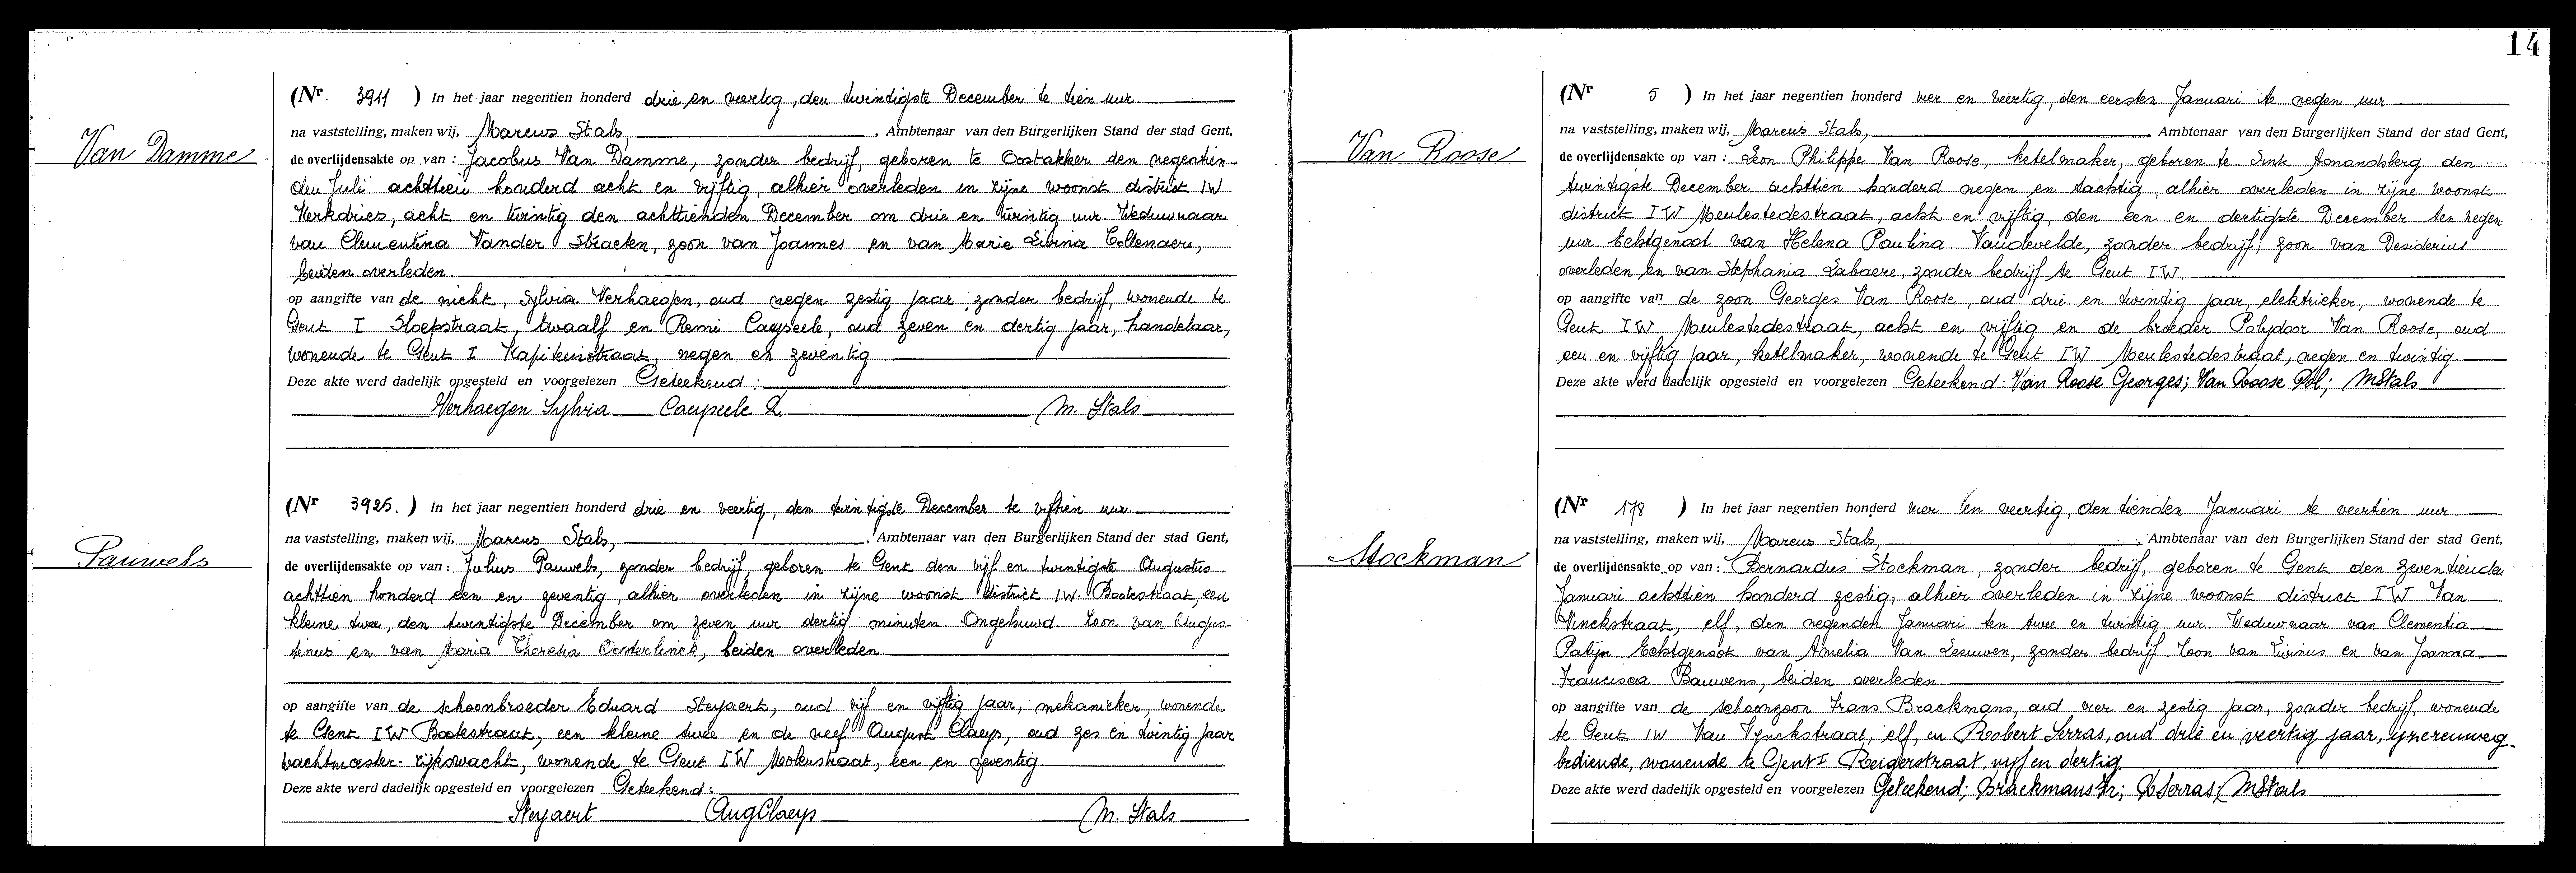 14
Van Damme
(Nr. 3911 ) In het jaar negentien honderd drie en veertig, den twindigste December te tien uur
na vaststelling, maken wij, Marcus Stals, Ambtenaar van den Burgerlijken Stand der stad Gent,
de overlijdensakte op van : Jacobus Van Damme, zonder bedrijf, geboren te Oostakker den negentien-
den Juli achttien honderd acht en vijftig, alhier overleden in zijne woonst district IW
Kerkdries, acht en twintig den achttienden December om drie en twintig uur. Weduwnaar
van Clementina Vander Straeten, zoon van Joannes en van Marie Livina Collenaere,
beiden overleden
op aangifte van de nicht, Sylvia Verhaegen, oud negen zestig jaar, zonder bedrijf, wonende te
Gent I Sloepstraat, twaalf en Remi Caupeele, oud zeven en dertig jaar, handelaar,
wonende te Gent I Kapiteinstraat, negen en zeventig
Deze akte werd dadelijk opgesteld en voorgelezen Geteekend :
Verhaegen Sylvia Caupeele R. M. Stals
Pauwels
(Nr 3925. ) In het jaar negentien honderd drie en veertig, den twintigste December te vijftien uur.
na vaststelling, maken wij, Marcus Stals, Ambtenaar van den Burgerlijken Stand der stad Gent,
de overlijdensakte op van : Julius Pauwels, zonder bedrijf, geboren te Gent den vijf en twintigste Augustus
achttien honderd een en zeventig, alhier overleden in zijne woonst district IW. Bootestraat, een
kleine twee, den twintigste December om zeven uur dertig minuten Ongehuwd Zoon van Augus-
tinus en van Maria Theresia Oosterlinck, beiden overleden
op aangifte van de schoonbroeder Eduard Steyaert, oud vijf en vijftig jaar, mekanieker, wonende
te Gent IW Bootestraat, een kleine twee en de neef August Claeys, oud zes en twintig jaar
wachtmeester-rijkswacht, wonende te Gent IW Molenstraat, een en zeventig
Deze akte werd dadelijk opgesteld en voorgelezen Geteekend :
Steyaert AugClaeys M. Stals
Van Roose
(Nr 5 ) In het jaar negentien honderd vier en veertig, den eersten Januari te negen uur
na vaststelling, maken wij, Marcus Stals, Ambtenaar van den Burgerlijken Stand der stad Gent,
de overlijdensakte op van : Leon Philippe Van Roose, ketelmaker, geboren te Sint Amandsberg den
twintigste December achttien honderd negen en tachtig, alhier overleden in zijne woonst
district IW Meulestedestraat, acht en vijftig, den een en dertigste December ten negen
uur Echtgenoot van Helena Paulina Vandevelde, zonder bedrijf, zoon van Desiderius
overleden en van Stephania Labaere, zonder bedrijf te Gent IW
op aangifte van de zoon Georges Van Roose, oud drie en twindig jaar, elektrieker, wonende te
Gent IW Meulestedestraat, acht en vijftig en de broeder Polydoor Van Roose, oud
een en vijftig jaar, ketelmaker, wonende te Gent IW Meulestedestraat, negen en twintig
Deze akte werd dadelijk opgesteld en voorgelezen Geteekend : Van Roose Georges; Van Roose Pol; MStals
Stockman
(Nr 178 ) In het jaar negentien honderd vier en veertig, den tienden Januari te veertien uur
na vaststelling, maken wij, Marcus Stals, Ambtenaar van den Burgerlijken Stand der stad Gent,
de overlijdensakte op van : Bernardus Stockman, zonder bedrijf, geboren te Gent den zeventienden
Januari achttien honderd zestig, alhier overleden in zijne woonst district IW Van
Vinckstraat, elf, den negenden Januari ten twee en twintig uur. Weduwnaar van Clementia
Patijn Echtgenoot van Amelia Van Leeuwen, zonder bedrijf. Zoon van Livinus en van Joanna
Francisca Bauwens, beiden overleden
op aangifte van de schoonzoon Frans Brackmans, oud vier en zestig jaar, zonder bedrijf, wonende
te Gent IW Van Vynckstraat, elf, en Robert Serras, oud drie en veertig jaar, ijzerenweg-
bediende, wonende te Gent I Reigerstraat, vijf en dertig
Deze akte werd dadelijk opgesteld en voorgelezen Geteekend; Brackmans Fr; RSerras; MStals